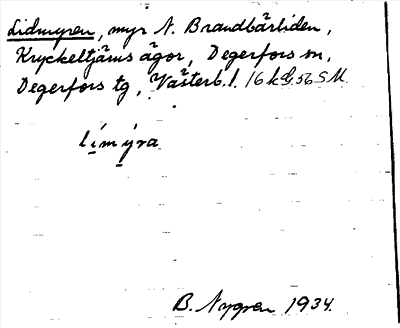 Lidmyren, myr N. Brandbärliden,
Kryckeltjärns ägor, Degerfors sn,
Degerfors tg, Västerb. l. 16 k 56 SM
límýra
B. Nygren 1934.